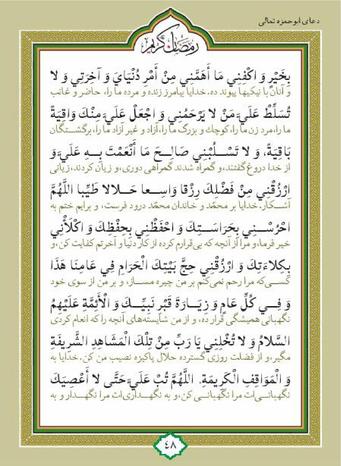 دعای ابوحمزه ثمالی
رمضان کریم
بِخَيْرٍ وَ اكْفِنِي مَا أَهَمَّنِي مِنْ أَمْرِ دُنْيَايَ وَ آخِرَتِي وَ لا
و آنان با نیکیها پیوند ده. خدایا بیامرز زنده و مرده ما را، حاضر و غایب
تُسَلِّطْ عَلَيَّ مَنْ لا يَرْحَمُنِي وَ اجْعَلْ عَلَيَّ مِنْكَ وَاقِيَةً
ما را، مرد زن ما را، کوچک و بزرگ ما را، آزاد و غیر آزاد ما را، برگشتگان
بَاقِيَةً، وَ لا تَسْلُبْنِي صَالِحَ مَا أَنْعَمْتَ بِهِ عَلَيَّ وَ
از خدا دروغ گفتند، و گمراه شدند گمراهی دوری، و زیان کردند، زیانی
ارْزُقْنِي مِنْ فَضْلِكَ رِزْقا وَاسِعا حَلالا طَيِّبا اللَّهُمَّ
آشکار. خدایا بر محمّد و خاندان محمّد درود فرست، و برایم ختم به
احْرُسْنِي بِحَرَاسَتِكَ وَ احْفَظْنِي بِحِفْظِكَ وَ اكْلَأْنِي
خیر فرما، و مرا از آنچه که بی‌قرارم کرده از کار دنیا و آخرتم کفایت کن، و
بِكِلاءَتِكَ وَ ارْزُقْنِي حِجَّ بَيْتِكَ الْحَرَامِ فِي عَامِنَا هَذَا
کسی‌که مرا رحم نمی‌کند بر من چیره مساز، و بر من از سوی خود
وَ فِي كُلِّ عَامٍ وَ زِيَارَةَ قَبْرِ نَبِيِّكَ وَ الْأَئِمَّةِ عَلَيْهِمُ
نگهبانی همیشگی قرار ده، و از من شایسته‌های آنچه را که انعام کردی
السَّلامُ وَ لا تُخْلِنِي يَا رَبِّ مِنْ تِلْكَ الْمَشَاهِدِ الشَّرِيفَةِ
مگیر، و از فضلت روزی گسترده حلال پاکیزه نصیب من کن. خدایا به
وَ الْمَوَاقِفِ الْكَرِيمَةِ. اللَّهُمَّ تُبْ عَلَيَّ حَتَّى لا أَعْصِيَكَ
نگهبانی‌ات مرا نگهبانی کن، و به نگهداری‌ات مرا نگهدار، و به
٤٨